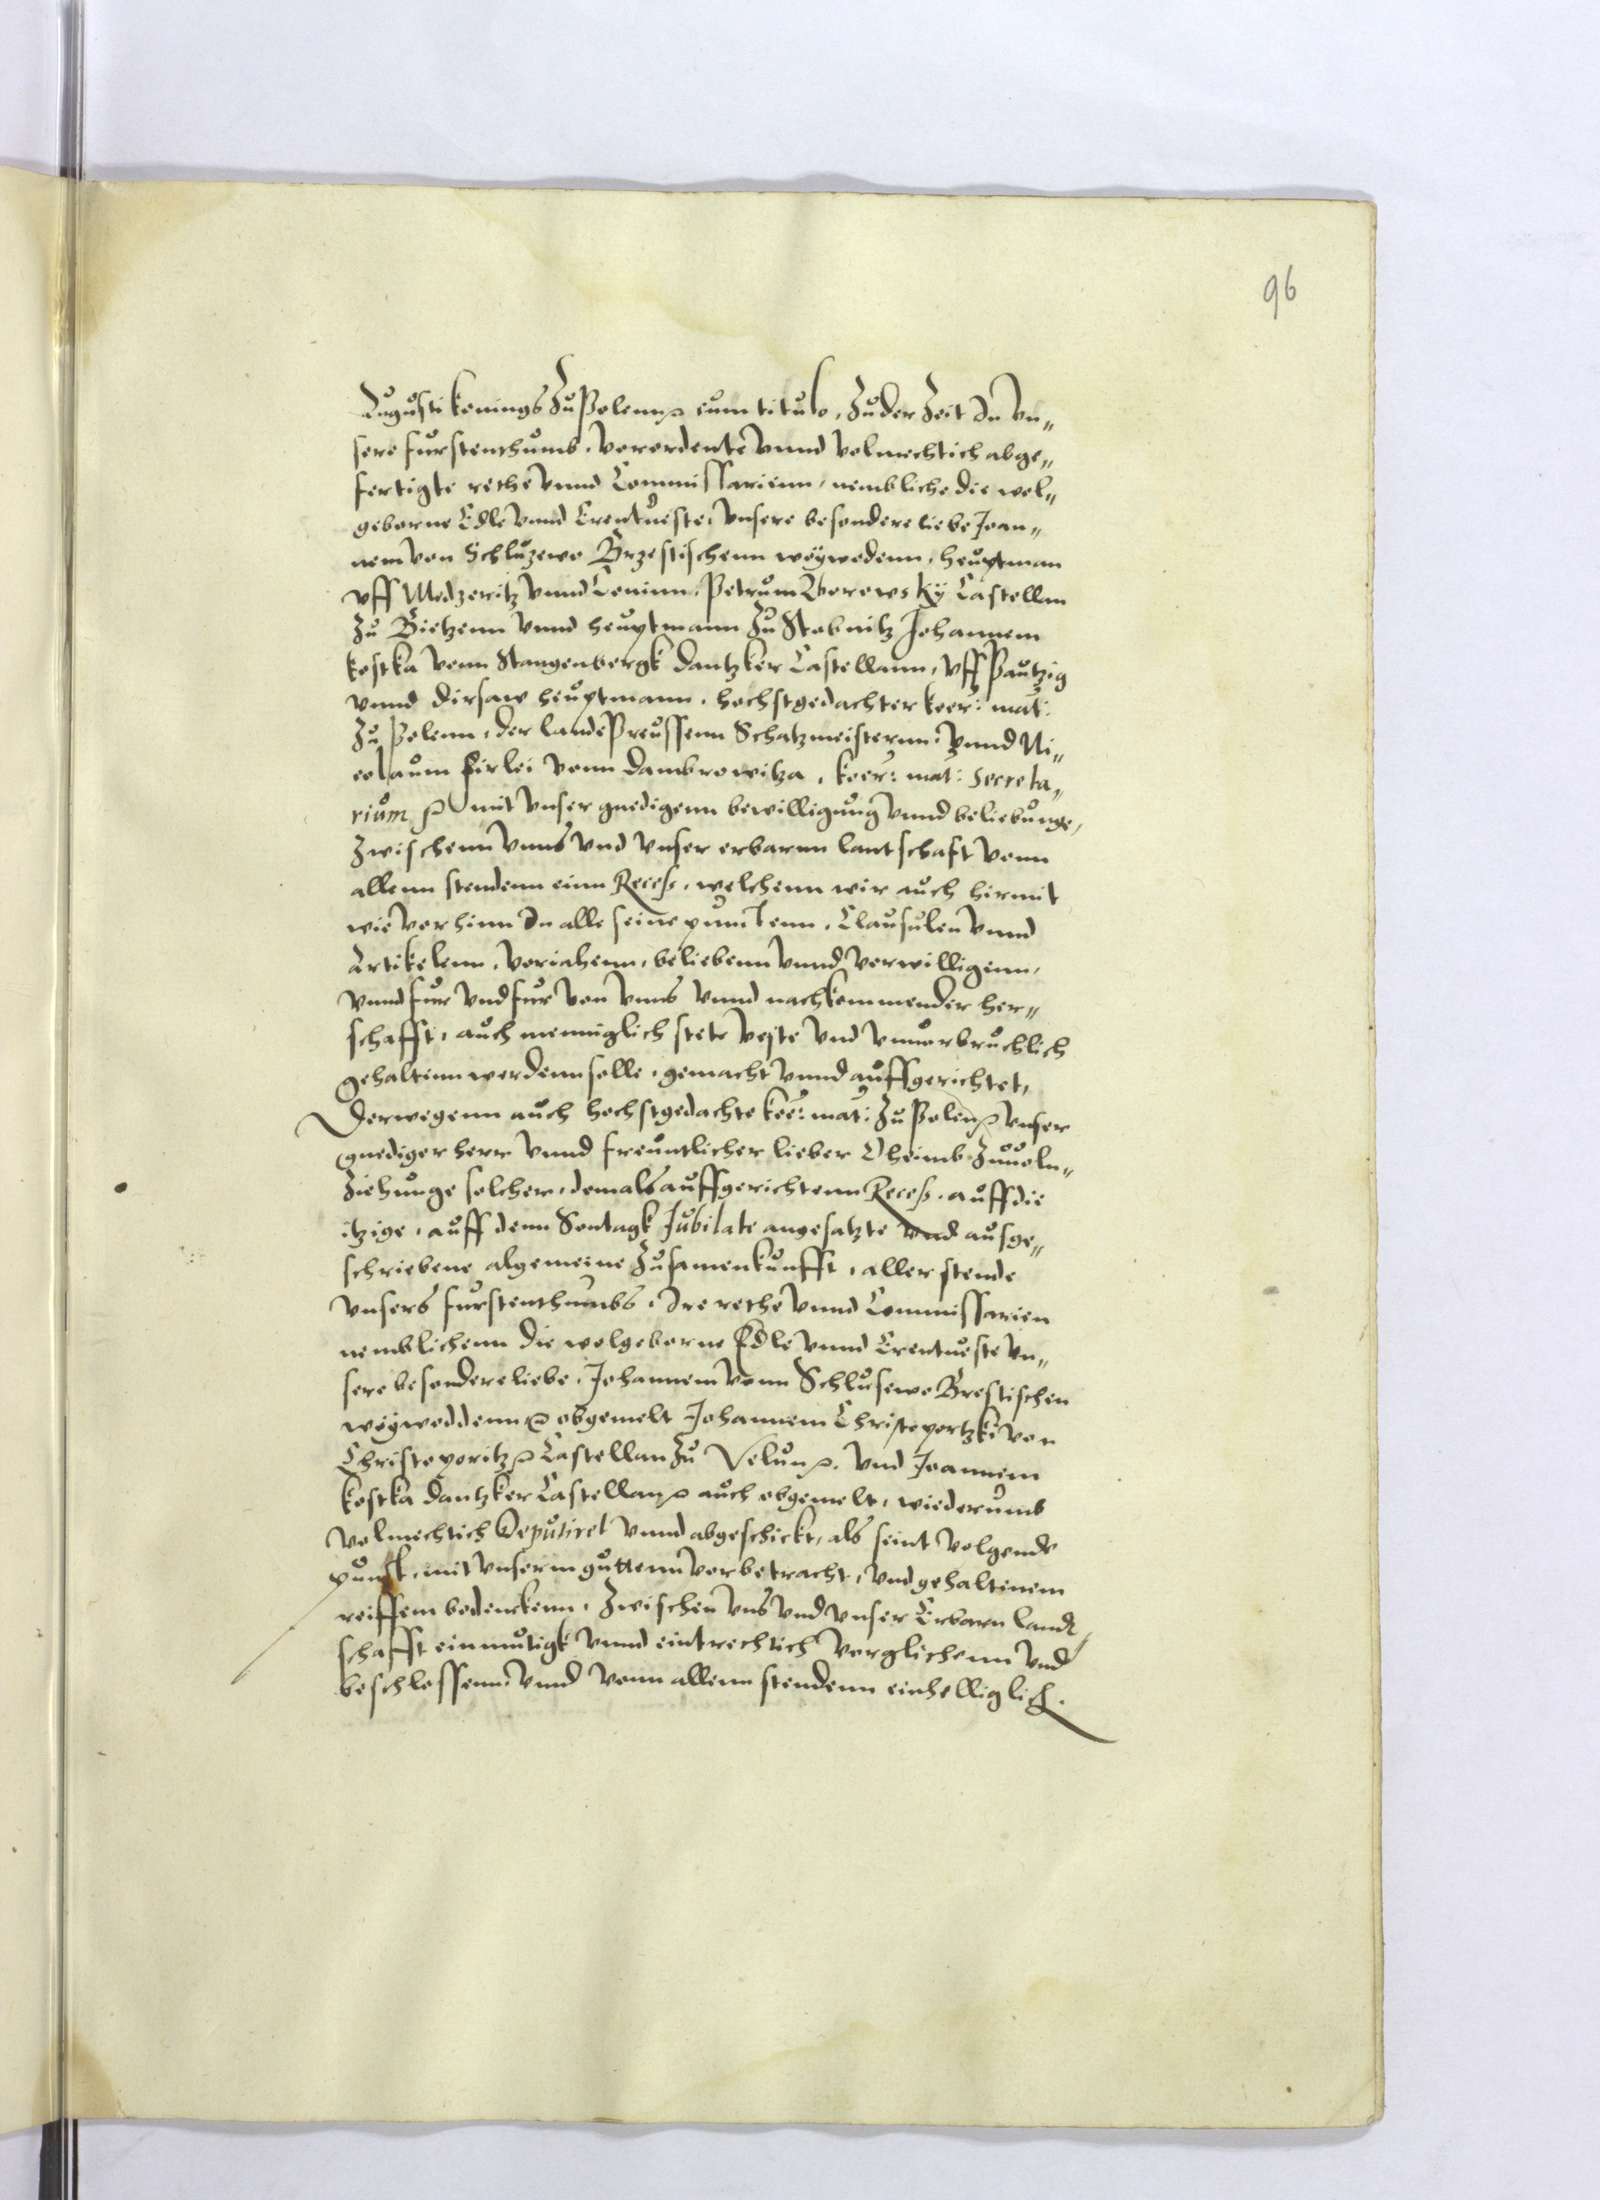 96
Augusti konings Zu Polenn ꝛc cum titulo, Zu der Zeit In un„
sere furstenthumb, verordente vnnd volmechtich abge„
fertigte rethe vnnd Commissarienn, nembliche die wol„
geborne Edle vnnd Erentueste, vnsere besondere liebe Joan„
nem von Schluzewo Brzestischenn woÿwodenn, heuptman
vff Medzeritz vnnd Coninn, Petrum Sborowskÿ Castellan
Zu Bietzenn vnnd heuptmann Zu Stobnitz Johannem
kostka vonn Stangenbergk Dantzker Castellann, vff Pautzig
vnnd Dirsaw heuptmann, hochstgedachter koer: mat:
Zu Polenn, der lande Preussenn Schatzmeisternn, vnnd Ni„
colaum Firlei vonn Dambrowitza, koer: mat: Secreta„
rium ꝛc mit vnser gnedigenn bewilligung vnnd beliebunge,
Zwischenn vnns vnd vnser erbarnn lantschaft vonn
allenn stendenn einn Recess, welchenn wir auch hirmit
wie vorhinn In alle seine punctenn, Clausulen vnnd
Artikelenn, voriahenn, beliebenn vnnd verwilligenn,
vnnd fur vnd fur von vnns vnnd nachkommender her„
schafft, auch menniglich stete veste vnd vnuorbruchlich
gehaltenn werdenn solle, gemacht vnnd auffgerichtet,
Derwegenn auch hochstgedachte koe: mat: Zu Polen ꝛc vnser
gnediger herr vnnd freuntlicher lieber Oheimb Zuuoln„
Ziehunge solcher, domals auffgerichtenn Recess, auff die
itzige, auff denn Sontagk Jubilate angesatzte vnd ausge„
schriebene algemeine Zusamenkunfft, aller stende
vnsers furstenthumbs, Ire rethe vnnd Commissarien
nemblichenn die wolgeborne Edle vnnd Erentueste vn„
sere besondere liebe, Johannem vonn Schlusewo Brestischen
woÿwoddenn ꝛc obgemelt Johannem Christoportzki von
Christoporitz ꝛc Castellan Zu Velun ꝛc. vnd Joannem
kostka Dantzker Castellan ꝛc auch obgemelt, wiederumb
volmechtich Deputiret vnnd abgeschickt, als seint volgende
punct, mit vnserm guttenn vorbetracht, vnd gehaltenem
reiffem bedenckenn, Zwischen vns vnd vnser Erbarn landt
schafft einmutigk vnnd eintrechtich verglichenn vnd
beschlossenn, vnnd vonn allenn stendenn einhelliglich.